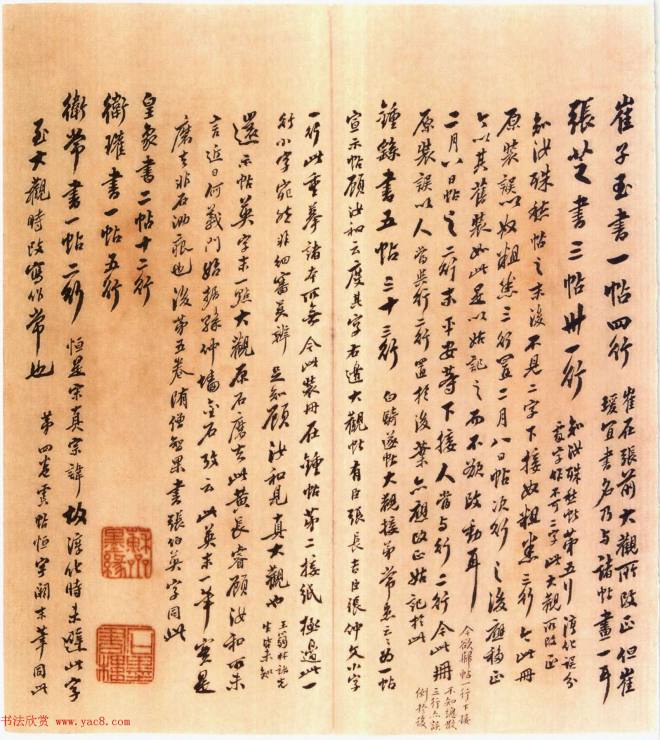 崔子玉書一帖四行 崔在張前大觀所改正但崔
瑗宜書名乃与諸帖畫一耳
張芝書三帖卅一行 知汝殊愁帖第五行淳化誤分
字作不可二字此大觀所改正
知汝殊愁帖之末後不見二字下接奴粗悉三行此冊
原裝誤以奴粗悉三行置二月八日帖次行之後應移正
今以其舊裝如此是以姑記之而不欲改動耳
二月八日帖之二行末平安等下接人當与行二行今此冊
原裝誤以人當與行二行置於後葉亦應改正姑記於此
今欲歸帖一行下接
不知總散
三行亦誤
倒於後
鍾繇書五帖三十三行 白騎遂帖大觀接第常患云云為一帖
宣示帖顧汝和云度其字右邊大觀帖有臣張長吉臣張仲文小字
一行此重摹諸本所無今此裝冊在鍾帖第二接紙極邊此一
行小字宛然非細審莫辨 足知顧汝和見真大觀也
還示帖英字末一點大觀原石磨去此黄長睿顧汝和所未
言近日何義門始據孫仲墙金石攷云此英末一筆實是
磨去非石泐痕也後第五卷隋僧智果書張伯英字同此
皇象書二帖十二行
衛瓘書一帖五行
衛常書一帖二行 恒是宋真宗諱故淳化時未避此字
至大觀時改寫作常也 第四卷雲帖恒字闕末筆同此
书法欣赏 www.yac8.com